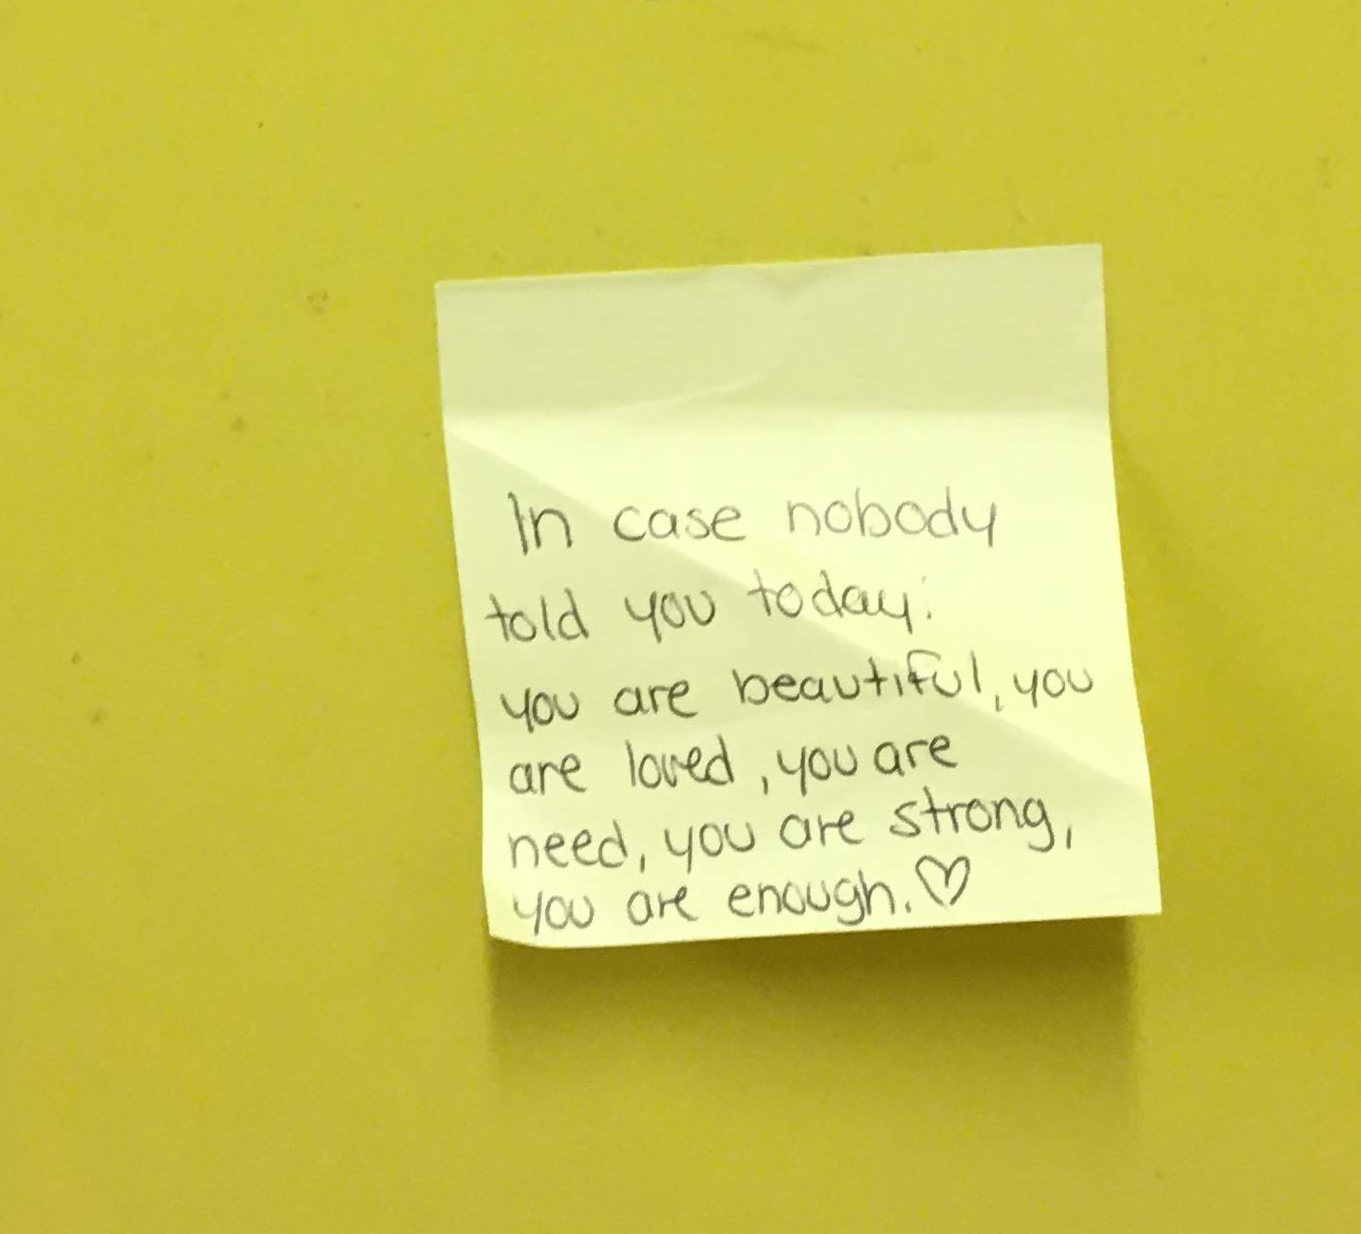 In case nobody
told you today:
you are beautiful, you
are loved, you are
need, you are strong,
you are enough. ♡